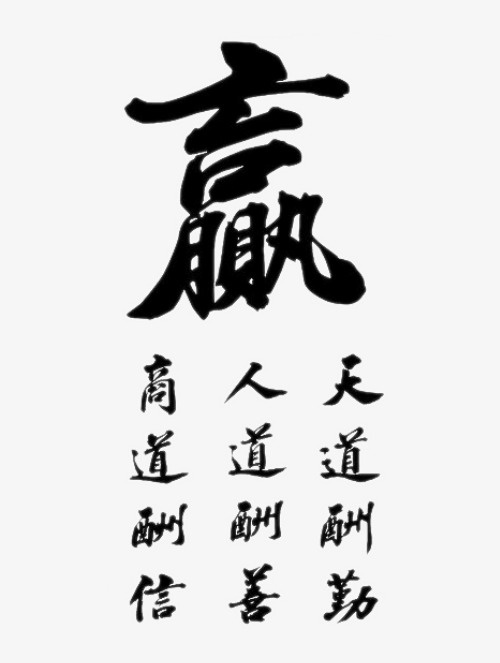 赢
天道酬勤
人道酬善
商道酬信